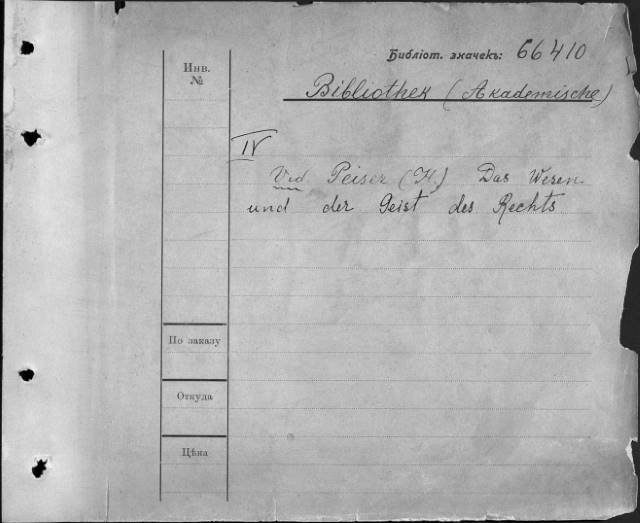 Библіот. значекъ: 66410
Инв.
№
Bibliothek (Akademische)
IV
Vid Peiser (H.) Das Wesen
und der Geist des Rechts
По заказу
Откуда
Цѣна